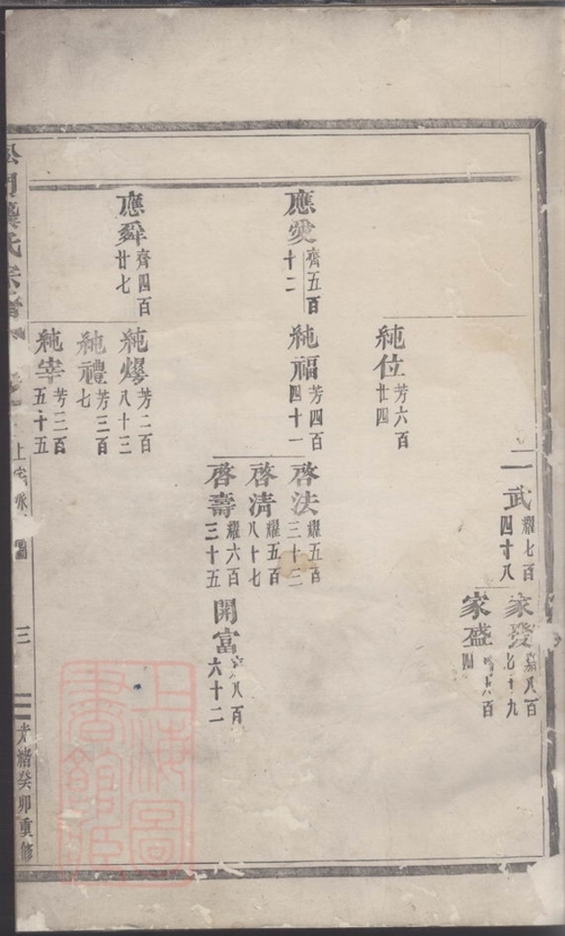 二
武
耀七百
四十八
家發
百
十九
家盛
百
四
純位
芳六百
廿四
應
齊五百
十二
純福
芳四百
四十一
啓法
耀五百
三十三
啓清
耀五百
八十七
啓壽
耀六百
三十五
開富
八百
六十二
應舜
齊四百
廿七
純
芳二百
八十三
純禮
芳三百
七
純宰
芳三百
五十五
氏宗
上
三
光緒癸卯重修
上海圖書館藏